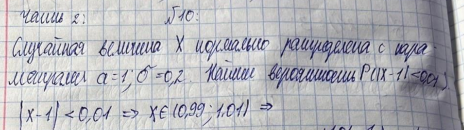 Часть 2:
№10:
Случайная величина X нормально распределена с пара-
метрами a=1; σ=0,2. Найти вероятность P(|x-1|<0,01).
|x-1|<0,01 => x∈(0,99; 1,01) =>